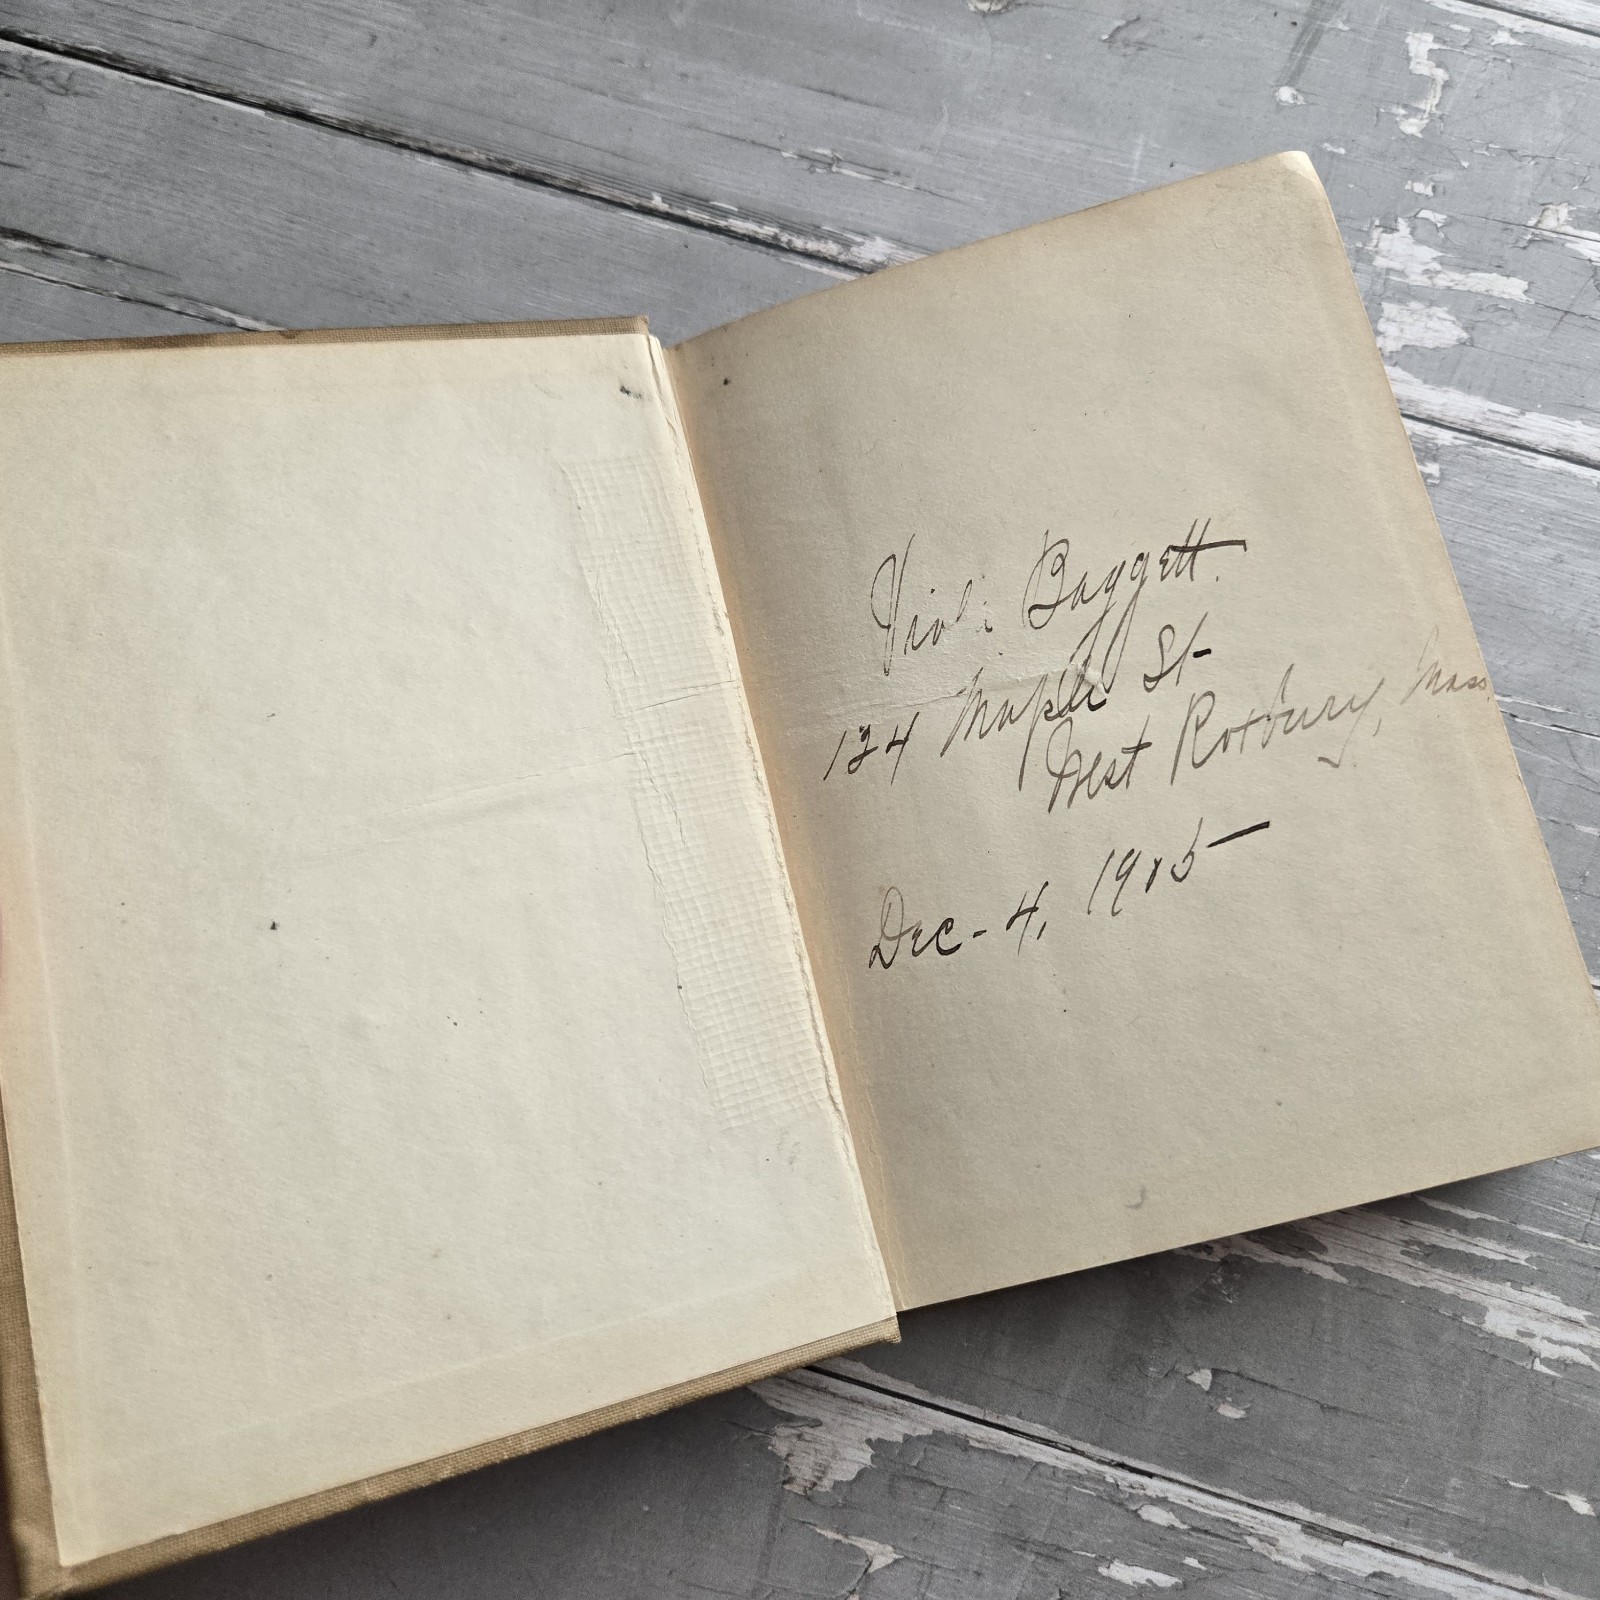 Viola Baggett.
134 Maple St-
West Roxbury, Mass.
Dec- 4, 1915